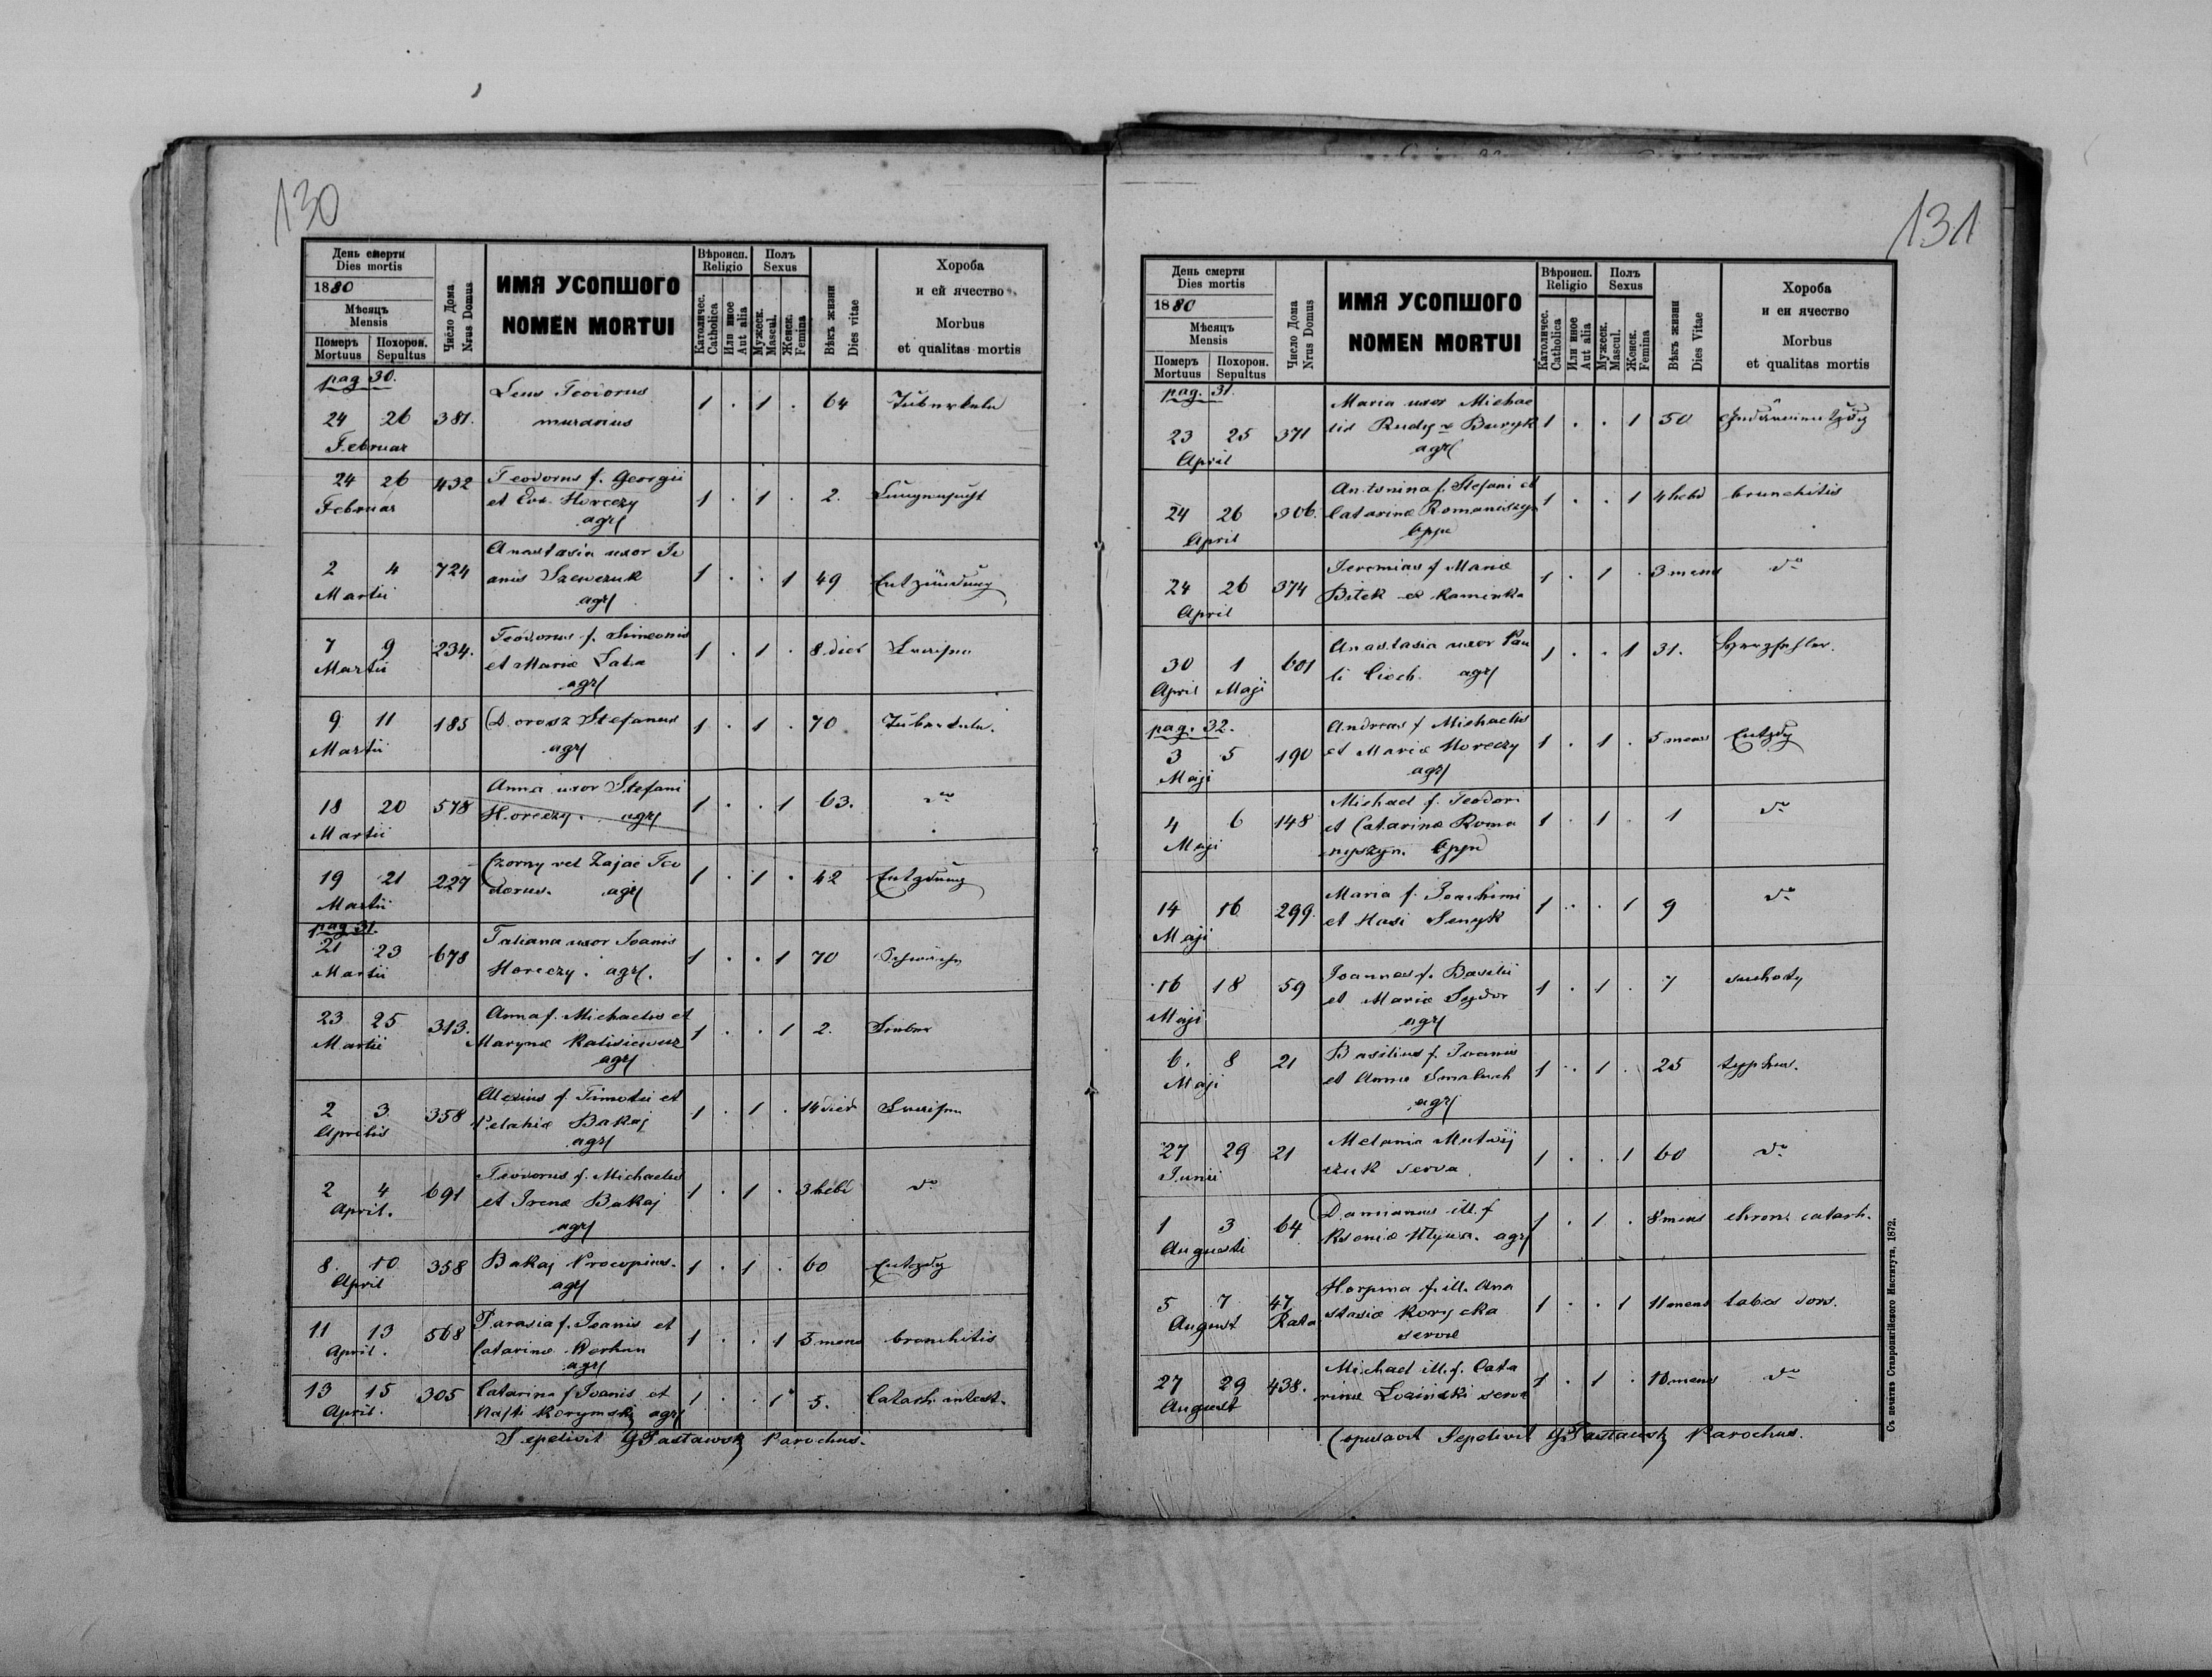 130
День смерти
Dies mortis
1880
Мѣсяцъ
Mensis
Померъ Похорон.
Mortuus Sepultus
Число Дома
Nrus Domus
ИМЯ УСОПШОГО
NOMEN MORTUI
Вѣроисп.
Religio
Католичес.
Catholica
Или иное
Aut alia
Полъ
Sexus
Мужеск.
Mascul.
Женск.
Femina
Вѣкъ жизни
Dies vitae
Хороба
и ей ячество
Morbus
et qualitas mortis
pag 30.
Teodorus
24 26 381. murarius 1 . 1 . 64
Februar
24 26 432 Teodorus f. Georgii
Februar et Eva Horeczy 1 . 1 . 2. Lungensucht
agr
Anastasia uxor Jo
2 4 724 anis Szewczuk 1 . . 1 49 Entzündung
Martii agr
7 9 234. Teodorus f. Simeonis
Martii et Mariæ Lata 1 . 1 . 8 dies
agr
9 11 185 Dorosz Stefanus 1 . 1 . 70
Martii agr
Anna uxor Stefani
18 20 578 Horeczy. agr 1 . . 1 63. do
Martii
Czorny vel Zajac Teo
19 21 227 dorus. agr 1 . 1 . 42 Entzdung
Martii
pag 31.
21 23 678 Tatiana uxor Joanis
Martii Horeczy. agr. 1 . . 1 70 Schwäche
23 25 313. Anna f. Michaelis et
Martii Marynæ Kalisiewicz 1 . . 1 2.
agr
Alexius f. Timotei et
2 3 358 Pelahiæ Bakaj 1 . 1 . 14 dies
Aprilis agr
Teodorus f. Michaelis
2 4 691 et Irenæ Bakaj 1 . 1 . 3 hebd do
April. agr
8. 10 358 Bakaj Procopius. 1 . 1 . 60 Entzdg
April agr
11 13 568 Parasia f. Joanis et
April. Catarinæ 1 . . 1 5 mens bronchitis
agr
13 15 305 Catarina f Joanis et
April. Nasti Korymski agr 1 . . 1 5. Catarh. intest.
Sepelivit Parochus.
131
День смерти
Dies mortis
1880
Мѣсяцъ
Mensis
Померъ Похорон.
Mortuus Sepultus
Число Дома
Nrus Domus
ИМЯ УСОПШОГО
NOMEN MORTUI
Вѣроисп.
Religio
Католичес.
Catholica
Или иное
Aut alia
Полъ
Sexus
Мужеск.
Mascul.
Женск.
Femina
Вѣкъ жизни
Dies Vitae
Хороба
и еи ячество
Morbus
et qualitas mortis
pag. 31.
Maria uxor Michae
23 25 371 lis Rudy Buryk 1 . . 1 50
April agr
Antonina f. Stefani et
24 26 306. Catarinæ Romaniszyn 1 . . 1 4 hebd bronchitis
April
Jeremias f Mariæ
24 26 374 Bitek ex Kamenka 1 . 1 . 3 mens do
April
Anastasia uxor Pau
30 1 601 li Cioch. agr 1 . . 1 31. Herzfehler.
April Maji
pag. 32.
Andreas f Michaelis
3 5 190 et Mariæ Horeczy 1 . 1 . 5 mens Entzdg
Maji agr
Michael f. Teodori
4 6 148 et Catarinæ Roma 1 . 1 . 1 do
Maji nyszyn.
Maria f. Joachimi
14 16 299. et Hasi Senyk 1 . . 1 9 do
Maji
16 18 59 Joannes f. Basilii
Maji et Mariæ Sydor 1 . 1 . 7 suchoty
agr
6. 8 21 Basilius f. Joanis
Maji et Annæ 1 . 1 . 25 typhus.
agr
27 29 21 Melania Matwij
Junii czuk serva 1 . . 1 60 do
1 3 64 Damianus ill. f
Augusti Kseniæ agr 1 . 1 . 8 mens chron. catarh.
5 7 47 Horpyna f. ill. Ana
August Rata stasiæ Korycka 1 . . 1 11 mens tabes dors.
servæ
27 29 438. Michael ill. f. Cata
August rinæ servæ 1 . 1 . 10 mens do
Copulavit Sepelivit Parochus.
Съ печатнѣ Ставропигійского Института, 1872.